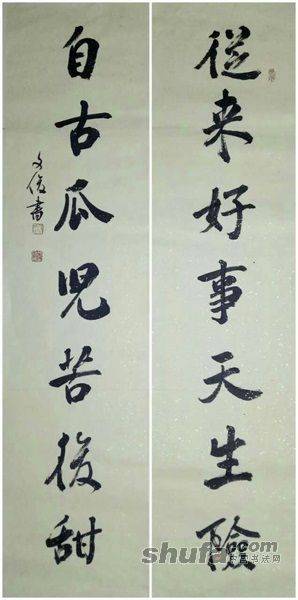 從来好事天生險
自古瓜児苦後甜
文俊書
shufa
中国书法网